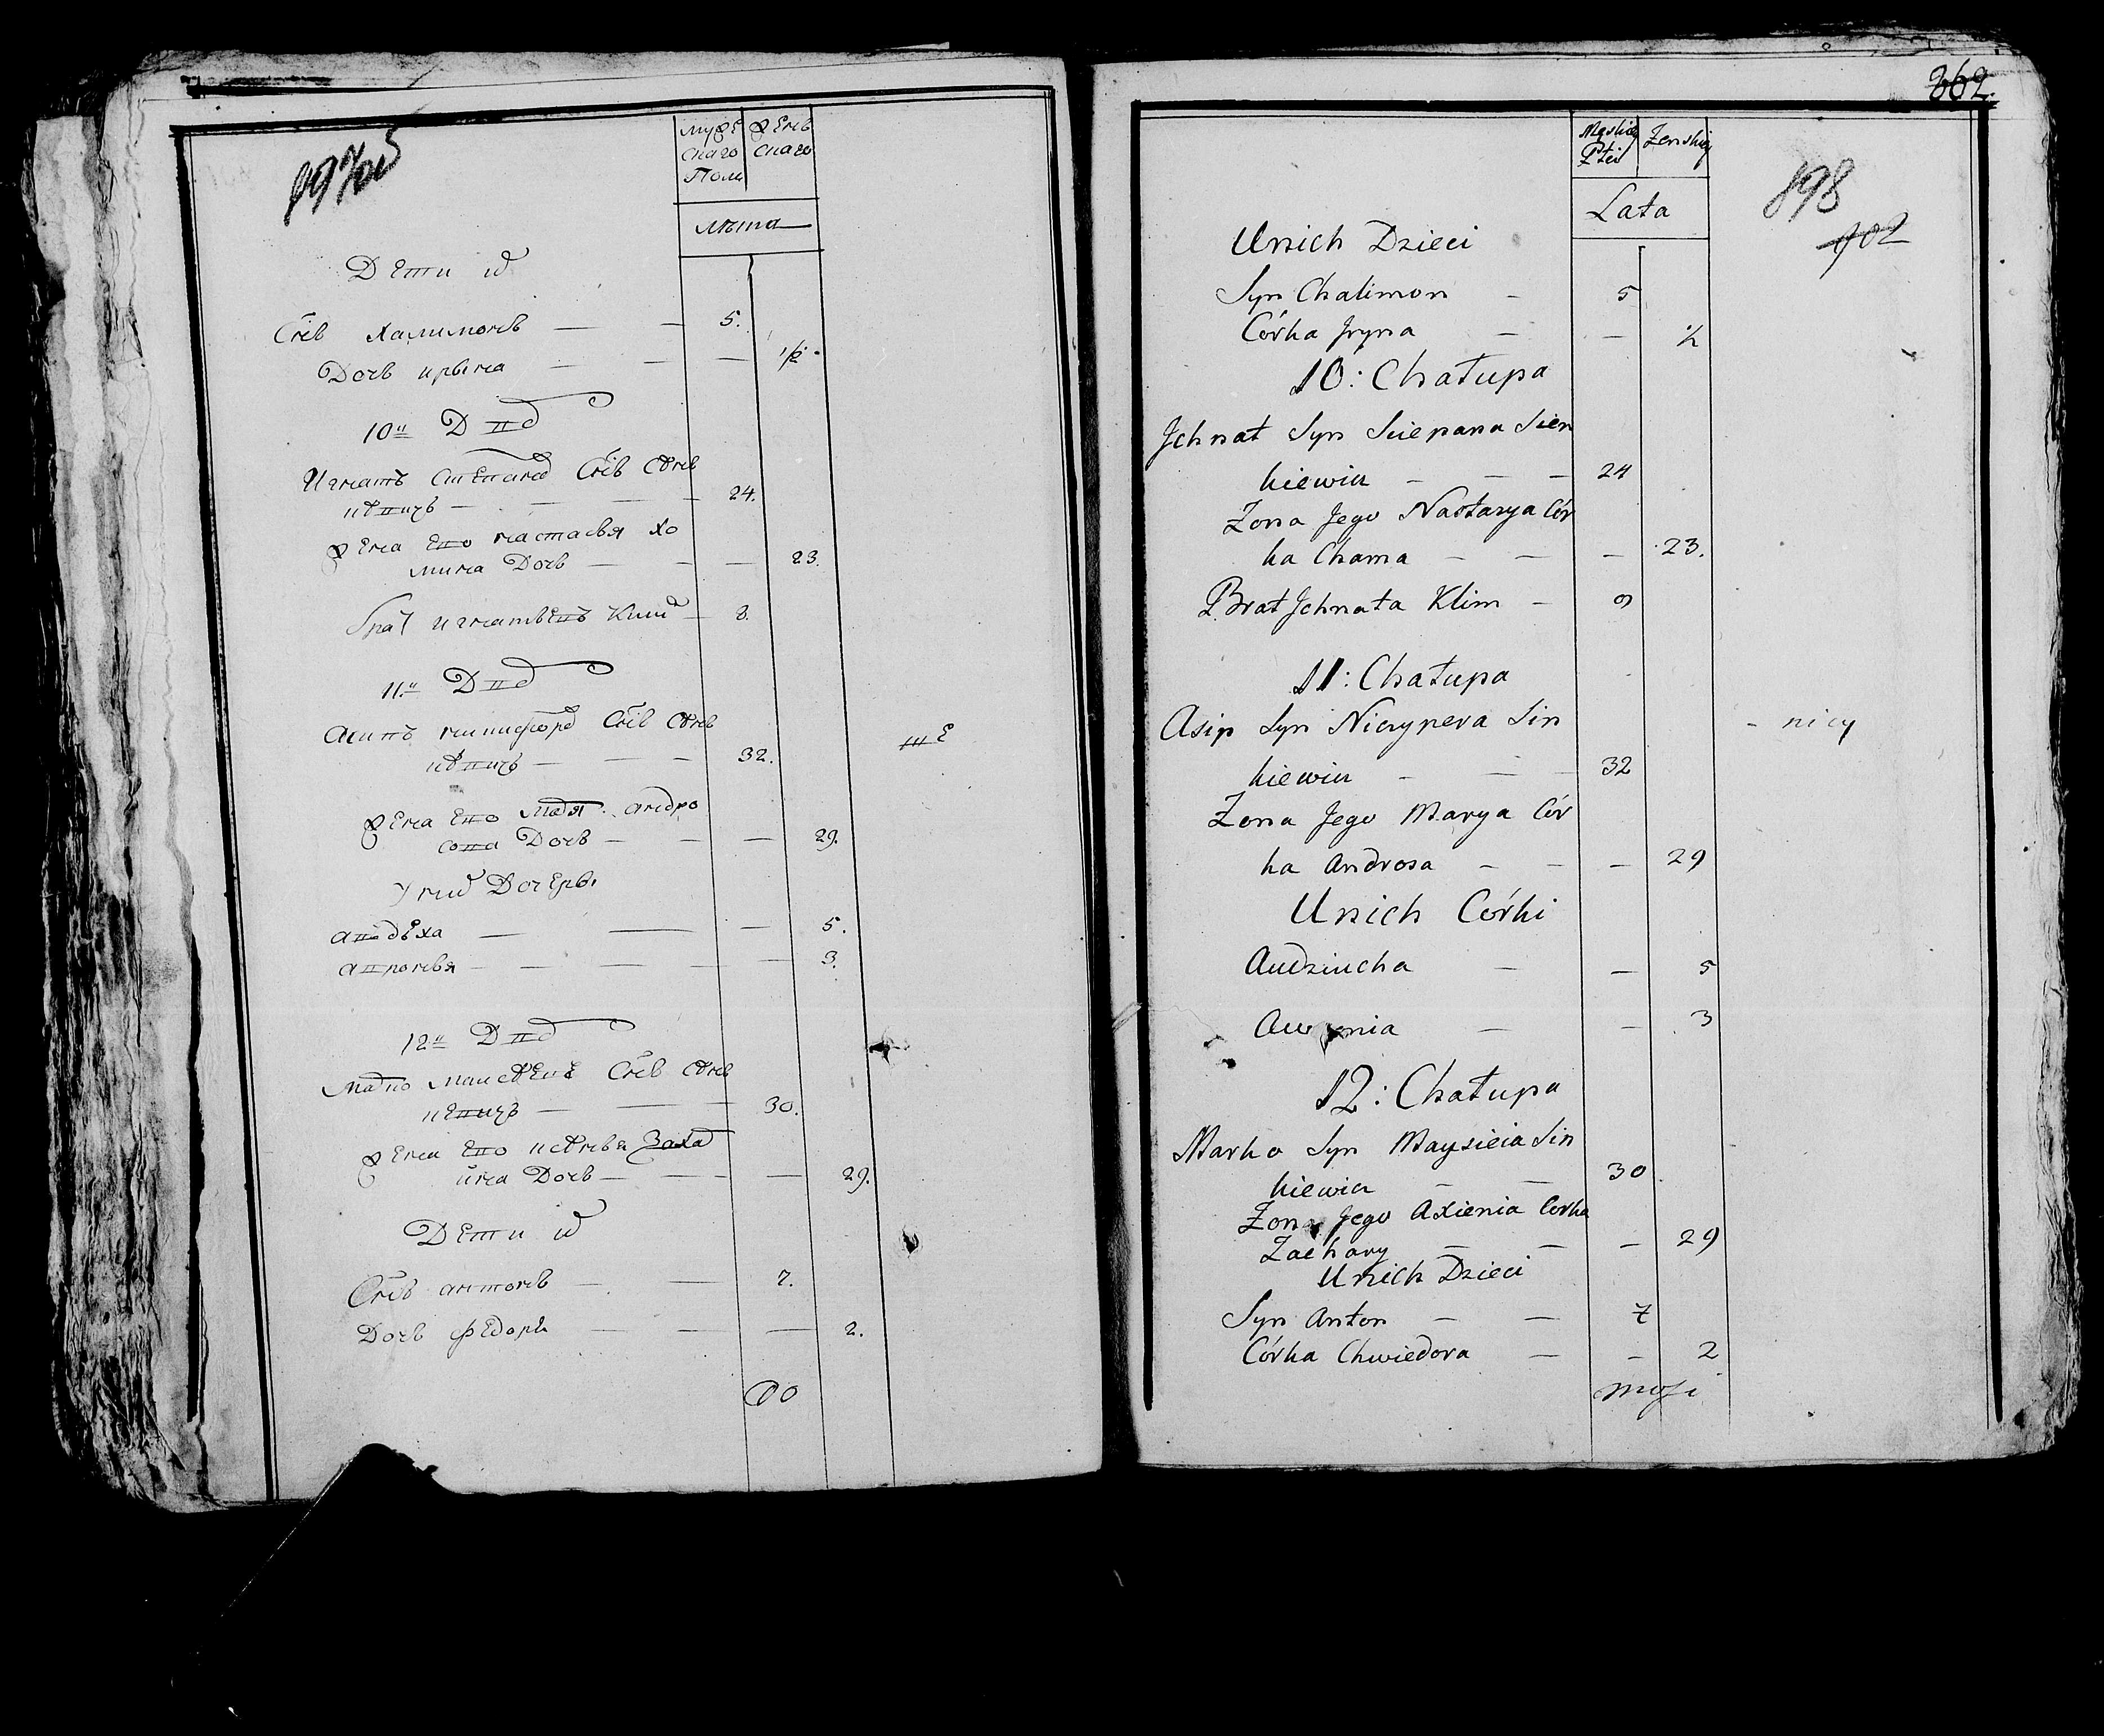 муже женъ
скаго скаго
Полu
лѣта
Дети ихъ
Снъ халимонъ — — 5.
Дочь ирына — — — 1/2.
10й Двор
Игнатъ Степанов Снъ Сень
кевичъ — — — 24.
жена его настасья хо
мина Дочь — — — 23.
братъ игнатьевъ Клим — 8.
11й Двор
Асипъ ничипоров Снъ Сень
кевичъ — — — 32.
же
жена его маря андро
сова Дочь — — — 29.
У них Дочеры
авдѣха — — — 5.
апронья — — — — — 3.
12й Двор
марко маисеевъ Снъ Сень
кевичъ — — 30.
жена его ксеня Захар
ина Дочь — — — — 29.
Дети ихъ
Снъ антонъ — — 7.
Дочь федора — — — 2.
862.
Męskiey Zenskiey
Płci
Lata
898
902
Unich Dzieci
Syn Chalimon — 5
Córka Jryna — — ½
10: Chałupa
Jchnat Syn Sciepana Sien
kiewicz — — — 24
Zona Jego Nastazya Cór
ka Chama — — — 23.
Brat Jchnata Klim — 9
11: Chałupa
Asip Syn Niczypera Sin — niey
kiewicz — — — 32
Zona Jego Marya Cór
ka Androsa — — — 29
Unich Córki
Audziucha — — 5
— — 3
12: Chałupa
Marko Syn Maysieia Sin
kiewicz — — 30
Zona Jego Axienia Corka
Zachary — — — 29
Unich Dzieci
Syn Anton — — 7
Córka Chwiedora — — 2